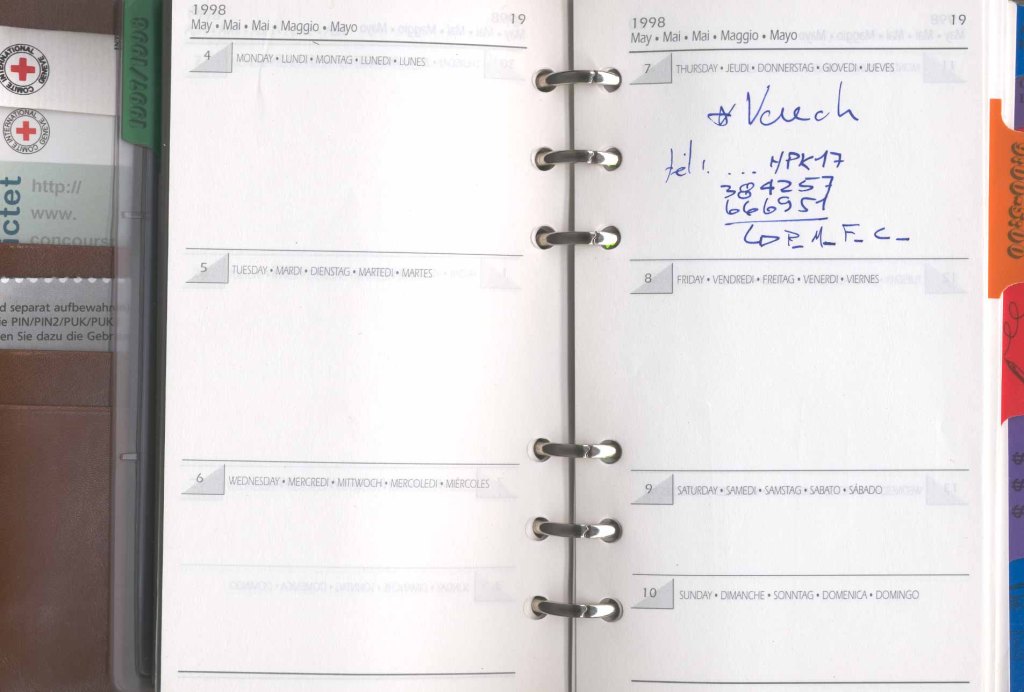 COMITE INTERNATIONAL GENEVE
COMITE INTERNATIONAL GENEVE
ictet
http://
www.
concours
d separat aufbewahr
ie PIN/PIN2/PUK/PUK
en Sie dazu die Gebr
1998 19
May • Mai • Mai • Maggio • Mayo
4 MONDAY • LUNDI • MONTAG • LUNEDI • LUNES
5 TUESDAY • MARDI • DIENSTAG • MARTEDI • MARTES
6 WEDNESDAY • MERCREDI • MITTWOCH • MERCOLEDI • MIÉRCOLES
1998 19
May • Mai • Mai • Maggio • Mayo
7 THURSDAY • JEUDI • DONNERSTAG • GIOVEDI • JUEVES
tél: ... HPK17
384257
666951
P_ M_ F_ C_
8 FRIDAY • VENDREDI • FREITAG • VENERDI • VIERNES
9 SATURDAY • SAMEDI • SAMSTAG • SABATO • SÁBADO
10 SUNDAY • DIMANCHE • SONNTAG • DOMENICA • DOMINGO